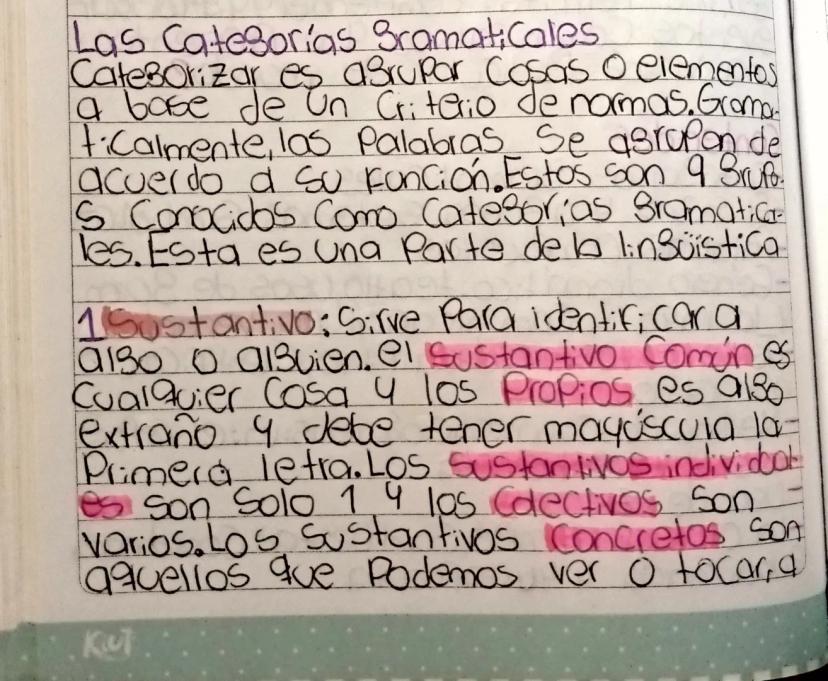 Las Categorías gramaticales
Categorizar es agrupar cosas o elementos
a base de un criterio de normas. Grama-
ticalmente, las palabras se agrupan de
acuerdo a su función. Estos son 9 grupo-
s conocidos como categorías gramatica-
les. Esta es una parte de la lingüistica
1 Sustantivo: Sirve para identificar a
algo o alguien. el sustantivo común es
cualquier cosa y los propios es algo
extraño y debe tener mayúscula la
primera letra. Los sustantivos individual-
es son solo 1 y los colectivos son
varios. Los sustantivos concretos son
aquellos que podemos ver o tocar, a
KWT